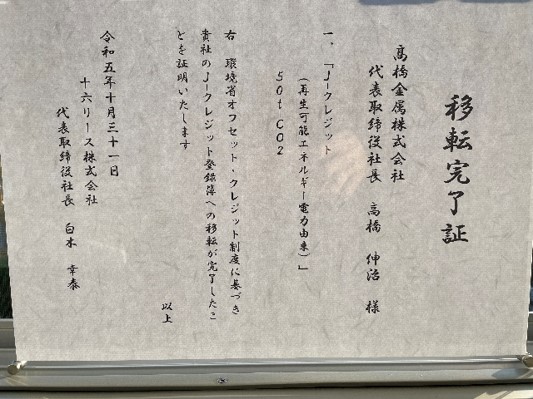 移転完了証
高橋金属株式会社
代表取締役社長 高橋 伸治 様
一、「J-クレジット
(再生可能エネルギー電力由来)」
50t CO2
右 環境省オフセット・クレジット制度に基づき
貴社のJ-クレジット登録簿への移転が完了したこ
とを証明いたします
以上
令和五年十月三十一日
十六リース株式会社
代表取締役社長 白木 幸泰